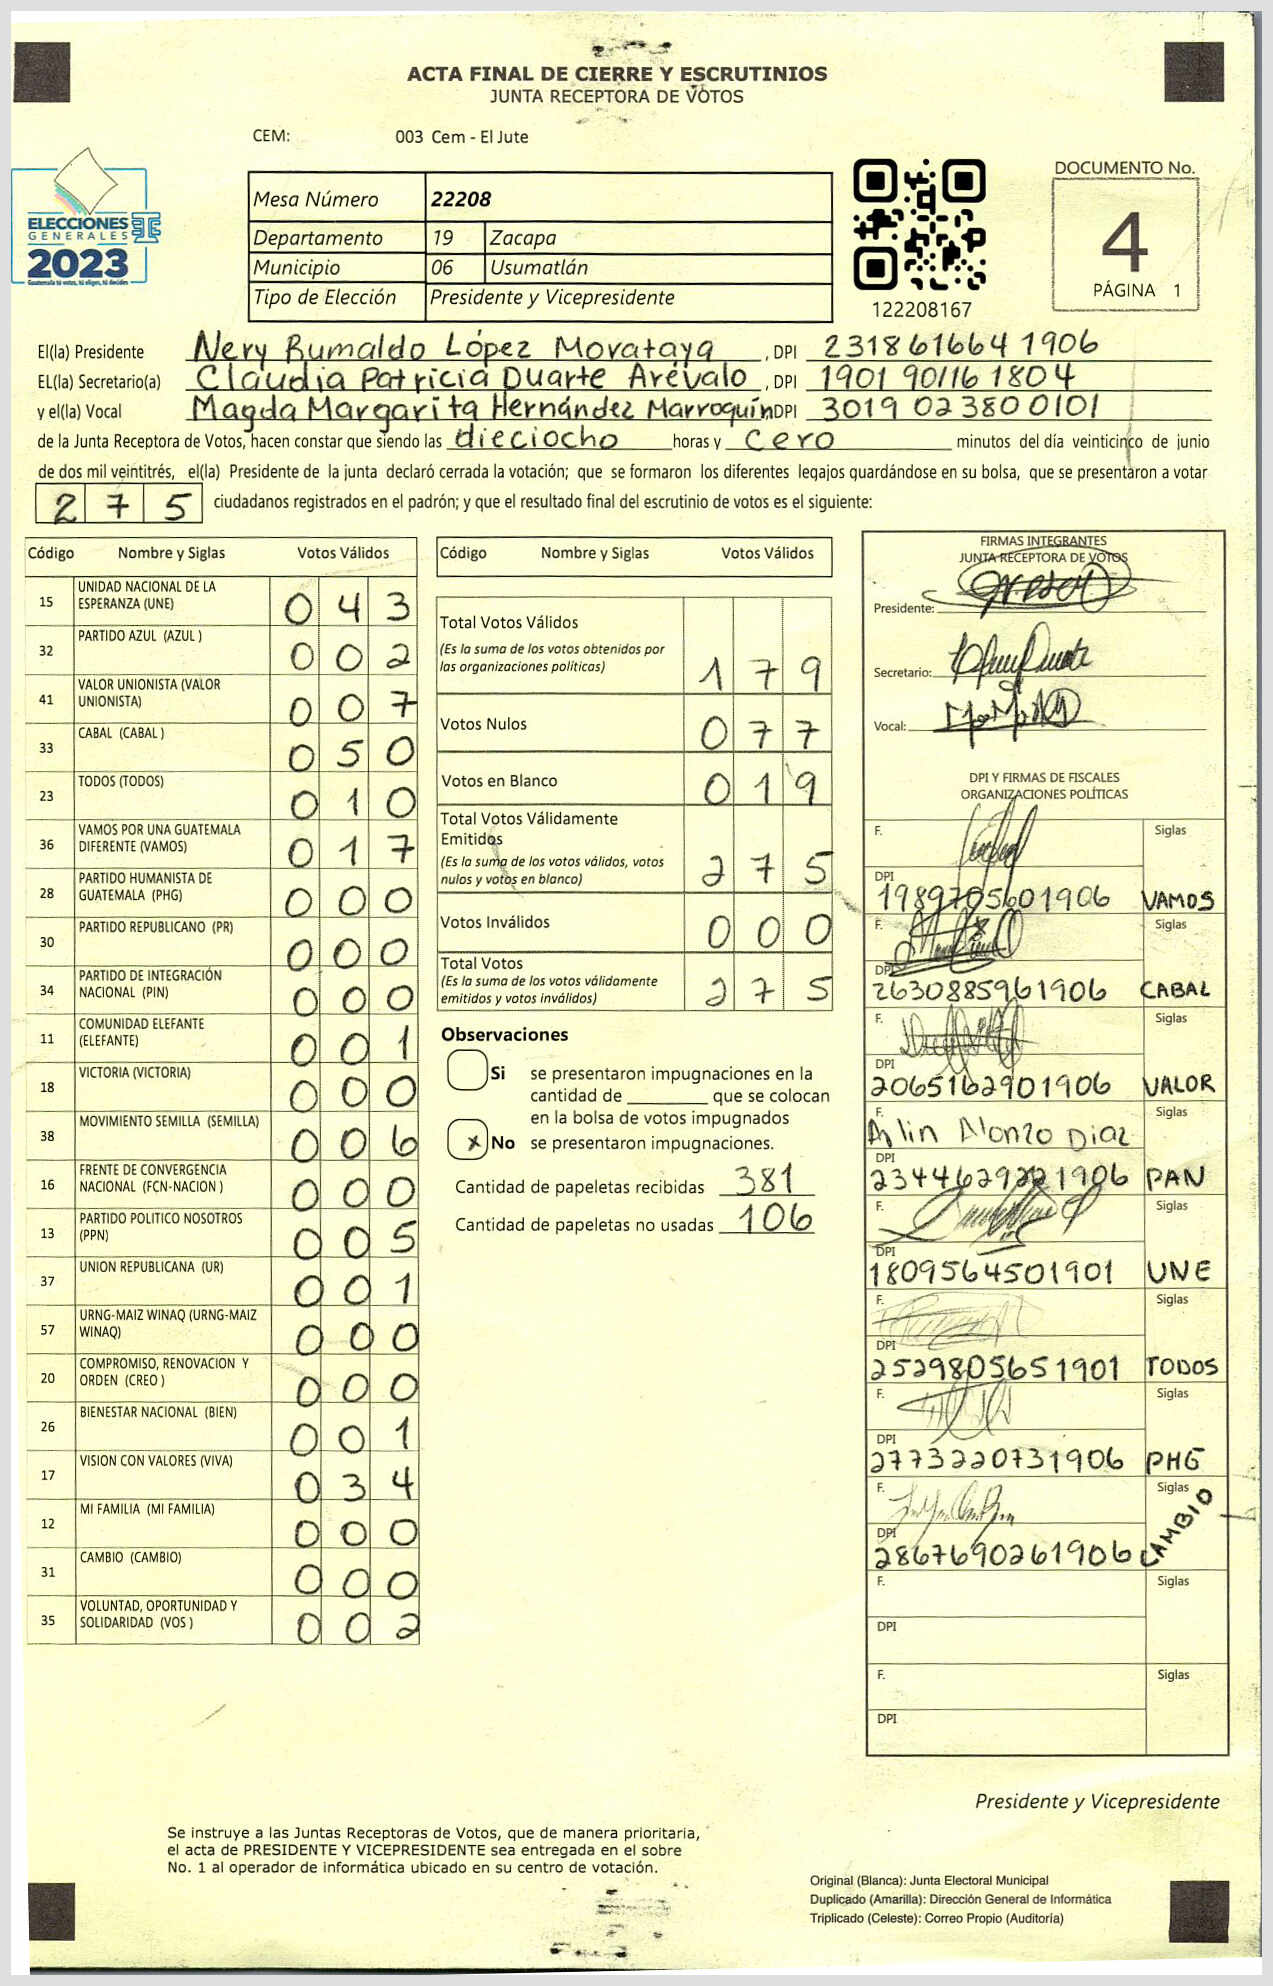 ACTA FINAL DE CIERRE Y ESCRUTINIOS
JUNTA RECEPTORA DE VOTOS
CEM: 003 Cem - El Jute
ELECCIONES
GENERALES
2023
Guatemala tú votas, tú eliges, tú decides
Mesa Número 22208
Departamento 19 Zacapa
Municipio 06 Usumatlán
Tipo de Elección Presidente y Vicepresidente
122208167
DOCUMENTO No.
4
PÁGINA 1
El(la) Presidente Nery Rumaldo López Morataya, DPI 231861664 1906
EL(la) Secretario(a) Claudia Patricia Duarte Arévalo, DPI 1901 90116 1804
y el(la) Vocal Magda Margarita Hernández Marroquín DPI 3019 02380 0101
de la Junta Receptora de Votos, hacen constar que siendo las dieciocho horas y cero minutos del día veinticinco de junio
de dos mil veintitrés, el(la) Presidente de la junta declaró cerrada la votación; que se formaron los diferentes legajos quardándose en su bolsa, que se presentaron a votar
275 ciudadanos registrados en el padrón; y que el resultado final del escrutinio de votos es el siguiente:
Código Nombre y Siglas Votos Válidos
15 UNIDAD NACIONAL DE LA ESPERANZA (UNE) 043
32 PARTIDO AZUL (AZUL ) 002
41 VALOR UNIONISTA (VALOR UNIONISTA) 007
33 CABAL (CABAL ) 050
23 TODOS (TODOS) 010
36 VAMOS POR UNA GUATEMALA DIFERENTE (VAMOS) 017
28 PARTIDO HUMANISTA DE GUATEMALA (PHG) 000
30 PARTIDO REPUBLICANO (PR) 000
34 PARTIDO DE INTEGRACIÓN NACIONAL (PIN) 000
11 COMUNIDAD ELEFANTE (ELEFANTE) 001
18 VICTORIA (VICTORIA) 000
38 MOVIMIENTO SEMILLA (SEMILLA) 006
16 FRENTE DE CONVERGENCIA NACIONAL (FCN-NACION ) 000
13 PARTIDO POLITICO NOSOTROS (PPN) 005
37 UNION REPUBLICANA (UR) 001
57 URNG-MAIZ WINAQ (URNG-MAIZ WINAQ) 000
20 COMPROMISO, RENOVACION Y ORDEN (CREO ) 000
26 BIENESTAR NACIONAL (BIEN) 001
17 VISION CON VALORES (VIVA) 034
12 MI FAMILIA (MI FAMILIA) 000
31 CAMBIO (CAMBIO) 000
35 VOLUNTAD, OPORTUNIDAD Y SOLIDARIDAD (VOS ) 002
Código Nombre y Siglas Votos Válidos
Total Votos Válidos 179
(Es la suma de los votos obtenidos por
las organizaciones políticas)
Votos Nulos 077
Votos en Blanco 019
Total Votos Válidamente
Emitidos 275
(Es la suma de los votos válidos, votos
nulos y votos en blanco)
Votos Inválidos 000
Total Votos 275
(Es la suma de los votos válidamente
emitidos y votos inválidos)
Observaciones
Si se presentaron impugnaciones en la
cantidad de ________ que se colocan
en la bolsa de votos impugnados
x No se presentaron impugnaciones.
Cantidad de papeletas recibidas 381
Cantidad de papeletas no usadas 106
FIRMAS INTEGRANTES
JUNTA RECEPTORA DE VOTOS
Presidente:
Secretario:
Vocal:
DPI Y FIRMAS DE FISCALES
ORGANIZACIONES POLÍTICAS
F. Siglas
DPI 1989705601906 VAMOS
F. Siglas
DPI 2630885961906 CABAL
F. Siglas
DPI 2065162901906 VALOR
F. Siglas
Alonzo Diaz
DPI 2344629221906 PAN
F. Siglas
DPI 1809564501901 UNE
F. Siglas
DPI 2529805651901 TODOS
F. Siglas
DPI 2773220731906 PHG
F. Siglas
DPI 2867690261906 CAMBIO
F. Siglas
DPI
F. Siglas
DPI
Presidente y Vicepresidente
Se instruye a las Juntas Receptoras de Votos, que de manera prioritaria,
el acta de PRESIDENTE Y VICEPRESIDENTE sea entregada en el sobre
No. 1 al operador de informática ubicado en su centro de votación.
Original (Blanca): Junta Electoral Municipal
Duplicado (Amarilla): Dirección General de Informática
Triplicado (Celeste): Correo Propio (Auditoría)